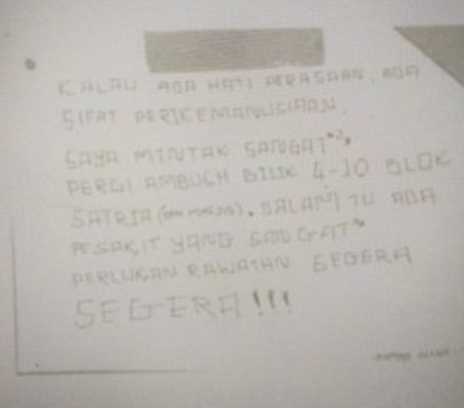 KALAU ADA HATI PERASAAN, ADA
SIFAT PERIKEMANUSIAAN.
SAYA MINTAK SANGAT"2,
PERGI AMBUSH BILIK 4-10 BLOK
SATRIA, DALAM TU ADA
PESAKIT YANG SANGAT"
PERLUKAN RAWATAN SEGERA
SEGERA!!!